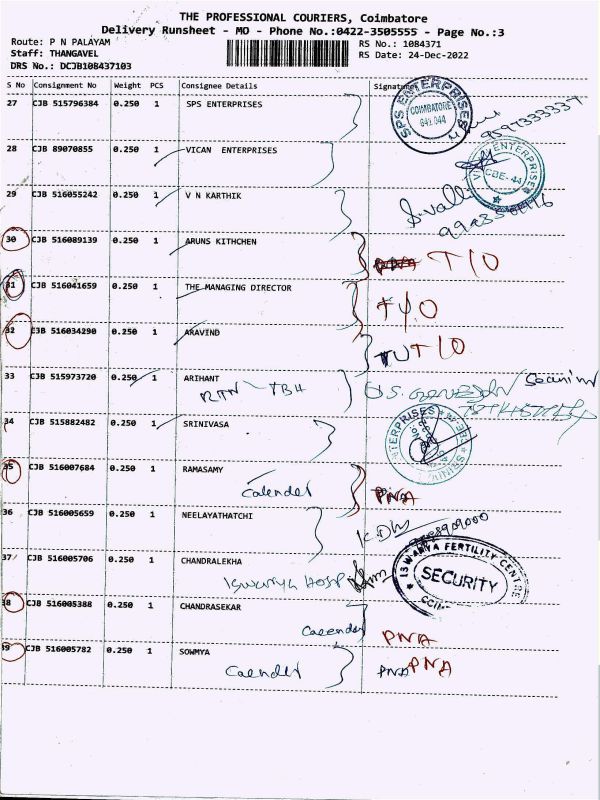 THE PROFESSIONAL COURIERS, Coimbatore
Delivery Runsheet - MO - Phone No.:0422-3505555 - Page No.:3
Route: P N PALAYAM
RS No.: 1084371
Staff: THANGAVEL
RS Date: 24-Dec-2022
DRS No.: DCJB108437103
S No Consignment No Weight PCS Consignee Details Signature
27 CJB 515796384 0.250 1 SPS ENTERPRISES
SPS ENTERPRISES
COIMBATORE
641 044
28 CJB 89070855 0.250 1 VICAN ENTERPRISES
ENTERPRISES
CBE-44
29 CJB 516055242 0.250 1 V N KARTHIK
30 CJB 516089139 0.250 1 ARUNS KITHCHEN T/O
31 CJB 516041659 0.250 1 THE MANAGING DIRECTOR T/O
32 CJB 516034290 0.250 1 ARAVIND T/O
33 CJB 515973720 0.250 1 ARIHANT
RTN - TBH
34 CJB 515882482 0.250 1 SRINIVASA
ENTERPRISES
35 CJB 516007684 0.250 1 RAMASAMY
Calender PNA
36 CJB 516005659 0.250 1 NEELAYATHATCHI
37 CJB 516005706 0.250 1 CHANDRALEKHA
Iswarya Hosp
ISWARYA FERTILITY CENTRE
SECURITY
38 CJB 516005388 0.250 1 CHANDRASEKAR
Calender PNA
39 CJB 516005782 0.250 1 SOWMYA
Calender PNA PNA